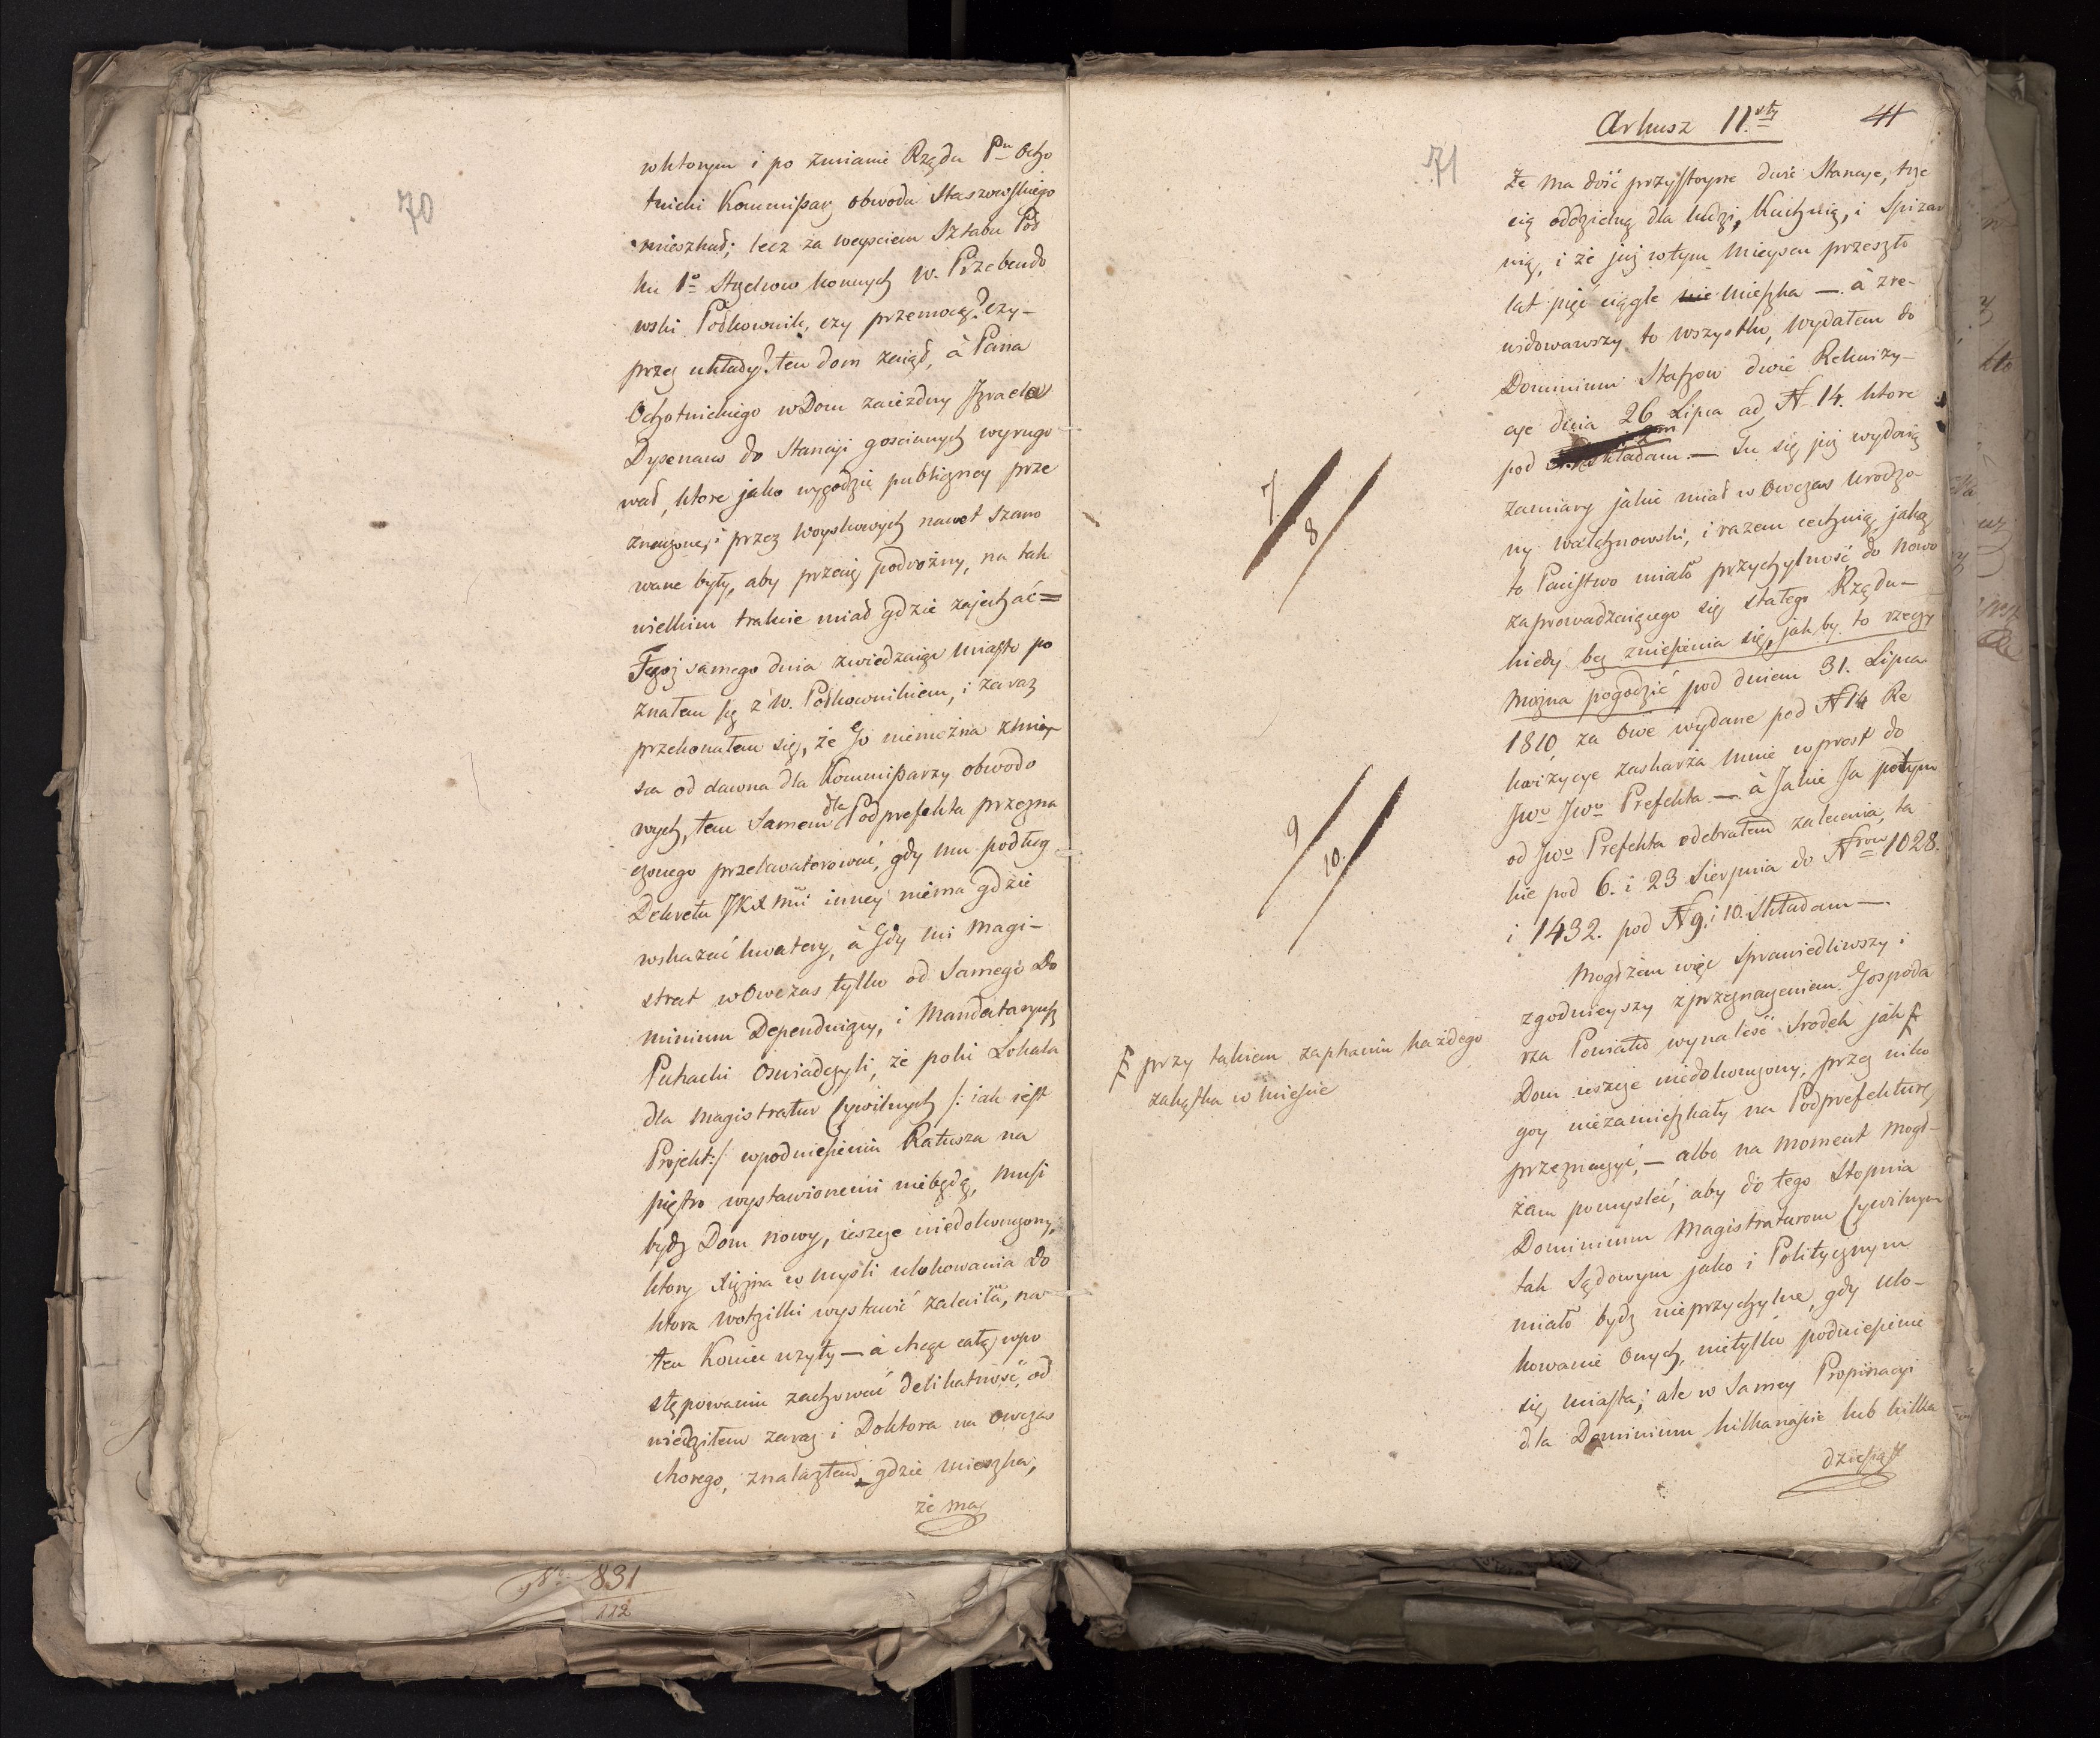 70
wktorym i po zmianie Rządu Pn Ocho
tnicki Kommißarz obwodu Staszowskiego
mieszkał; lecz za weysciem Sztabu Poł
ku 1o Strzelcow konnych W. Przebendo
wski Połkownik, czy przemocą? czy –
przez układy? ten dom zaiął, à Pana
Ochotnickiego w Dom zaiezdny Izraela
do Stancyi goscinnych wyrugo
wał, ktore jako wygodzie publiczney prze
znaczone, i przez Woyskowych nawet szano
wane były, aby przeciez podrożny, na tak
wielkim trakcie miał gdzie zajechać =
Tegoż samego dnia zwiedzaiąc Miasto po
znałem się z W. Połkownikiem, i zaraz
przekonałem się, że Go niemożna z miey
sca od dawna dla Kommißarzy obwodo
wych, tem samem dla Podprefekta przezna
czonego przekwaterować, gdy mu podług
Dekretu JKX Mci inney niema gdzie
wskazać kwatery, à Gdy mi Magi –
strat wowczas tylko od samego Do
minium Dependuiący, i Mandataryusz
Puhacki oswiadczyli, że poki Lokala
dla Magistratur Cywilnych /: iak iest
Projekt :/ w podniesieniu Ratusza na
piętro wystawionemi niebędą, musi
bydz Dom nowy, ieszcze niedokonczony,
ktory Xiężna w mysli ulokowania Do
ktora Wotzilki wystawić zaleciła, na
ten Koniec użyty — à chcąc całą w po
stępowaniu zachować delikatność, od
wiedziłem zaraz i Doktora na owczas
chorego, znalazłem, gdzie mieszka,
że ma
No 831
112
Arkusz 11.sty
71
Że ma dość przystoyne dwie Stancye, trze
cią oddzielną dla ludzi, Kuchnię, i Spiżar
nią, i że już wtym mieyscu przeszło
lat pięć ciągle nie mieszka — à zre-
widowawszy to wszystko, wydałem do
Dominium Staszow dwie Rekwizy –
cye dnia 26 Lipca ad N 14. ktore
pod składam. — Tu się już wydaią
zamiary jakie miał w owczas Urodzo-
ny Walchnowski, i razem cechuią jaką
to Państwo miało przychylność do nowo
zaprowadzaiącego się stałego Rządu –
kiedy bez zniesienia się, jak by to rzeczy
można pogodzić pod dniem 31. Lipca
1810 za owe wydane pod N 14 Re
kwizycye zaskarża mnie wprost do
JWo JWo Prefekta — à Jakie Ja potym
od JWo Prefekta odebrałem zalecenia, ta
kie pod 6. i 23 Sierpnia do Nrow 1028.
i 1432. pod N 9. i 10. składam —.
7.
8
9
10.
Mogłżem więc sprawiedliwszy i
zgodnieyszy z przeznaczeniem Gospoda
rza Powiatu wynalesć srodek jak F
F przy takiem zapchaniu każdego
zakątka w miescie
Dom ieszcze niedokonczony, przez niko
goy niezamieszkały na Podprefekturę
przeznaczyć, — albo na moment mogł-
żem pomysleć, aby do tego stopnia
Dominium Magistraturom Cywilnym
tak Sądowym jako i Politycznym
miało bydz nieprzychylne, gdy ulo-
kowanie onych, nietylko podniesienie
się miasta; ale w samey Propinacyi
dla Dominium kilkanaście lub kilka
dziesiąt